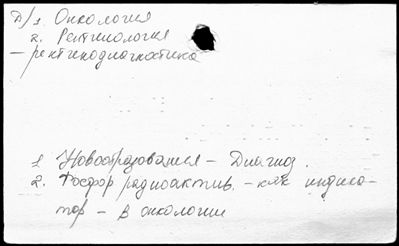 Д/1. Онкология
2. Рентгенология
– рентгенодиагностика
1. Новообразования – Диагноз.
2. Фосфор радиоактив. – как индика-
тор – в онкологии